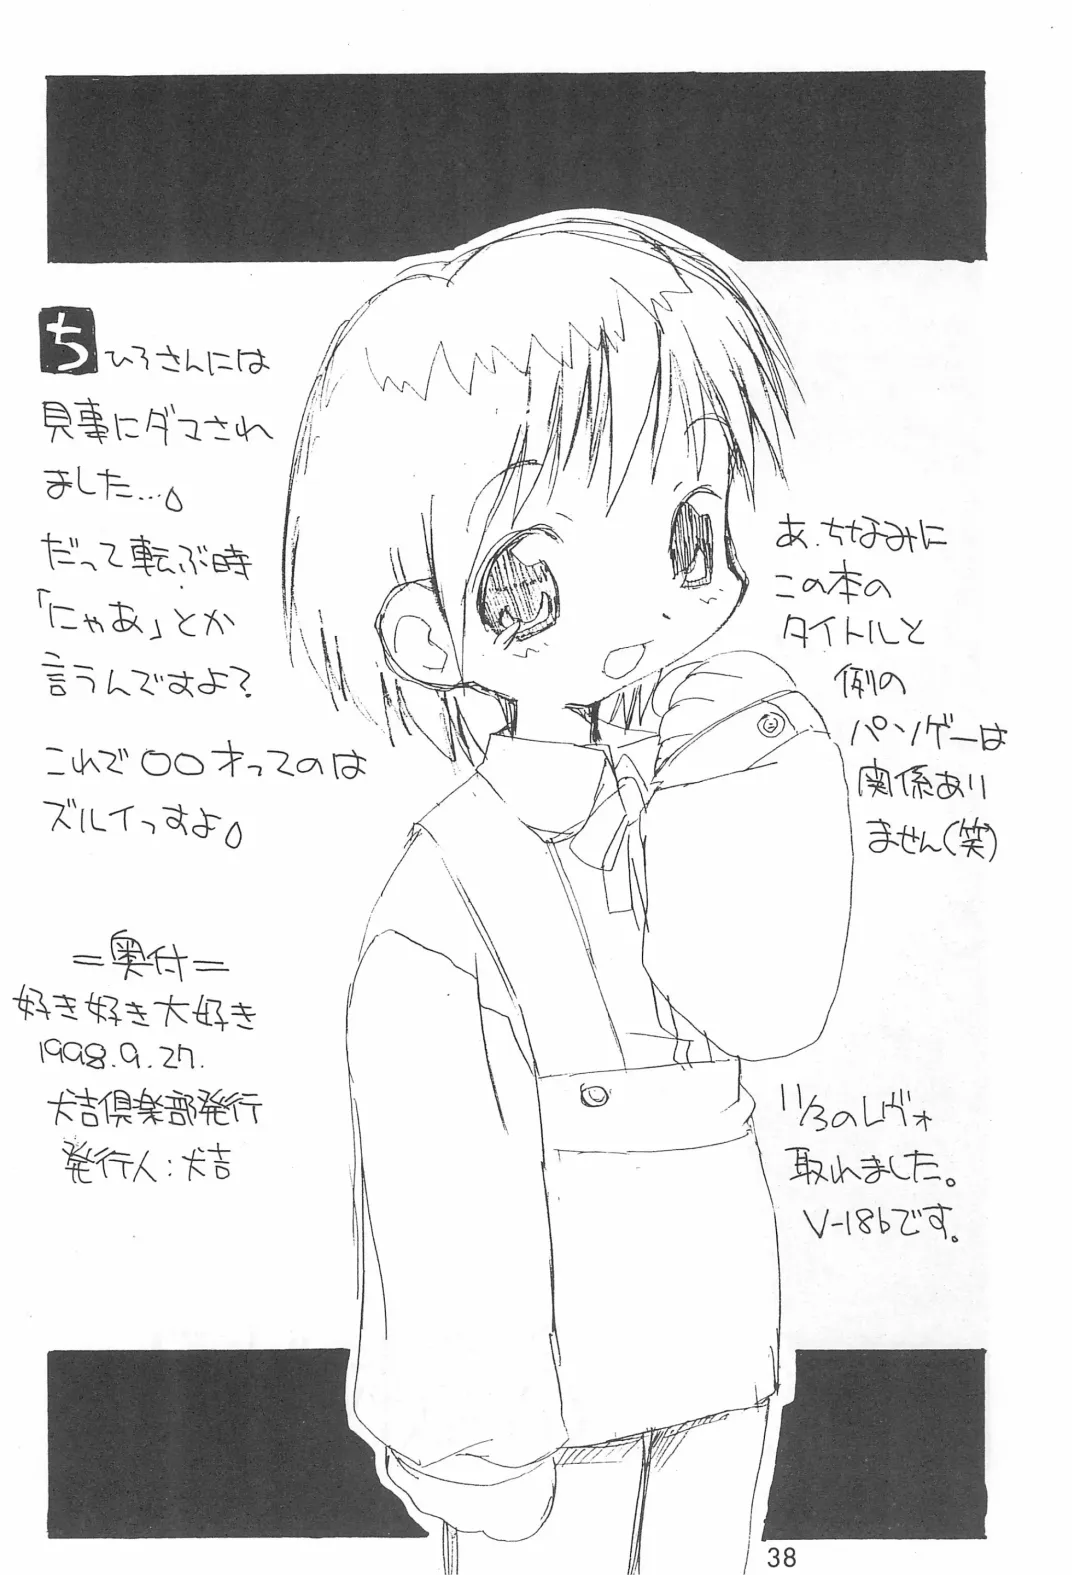 ちひろさんには
見事にダマされ
ました…。
だって転ぶ時
「にゃあ」とか
言うんですよ?
これで〇〇才ってのは
ズルイっすよ。
あ、ちなみに
この本の
タイトルと
例の
パソゲーは
関係あり
ません(笑)
=奥付=
好き好き大好き
1998.9.27.
犬吉倶楽部発行
発行人:犬吉
11/3のレヴォ
取れました。
V-18bです。
38